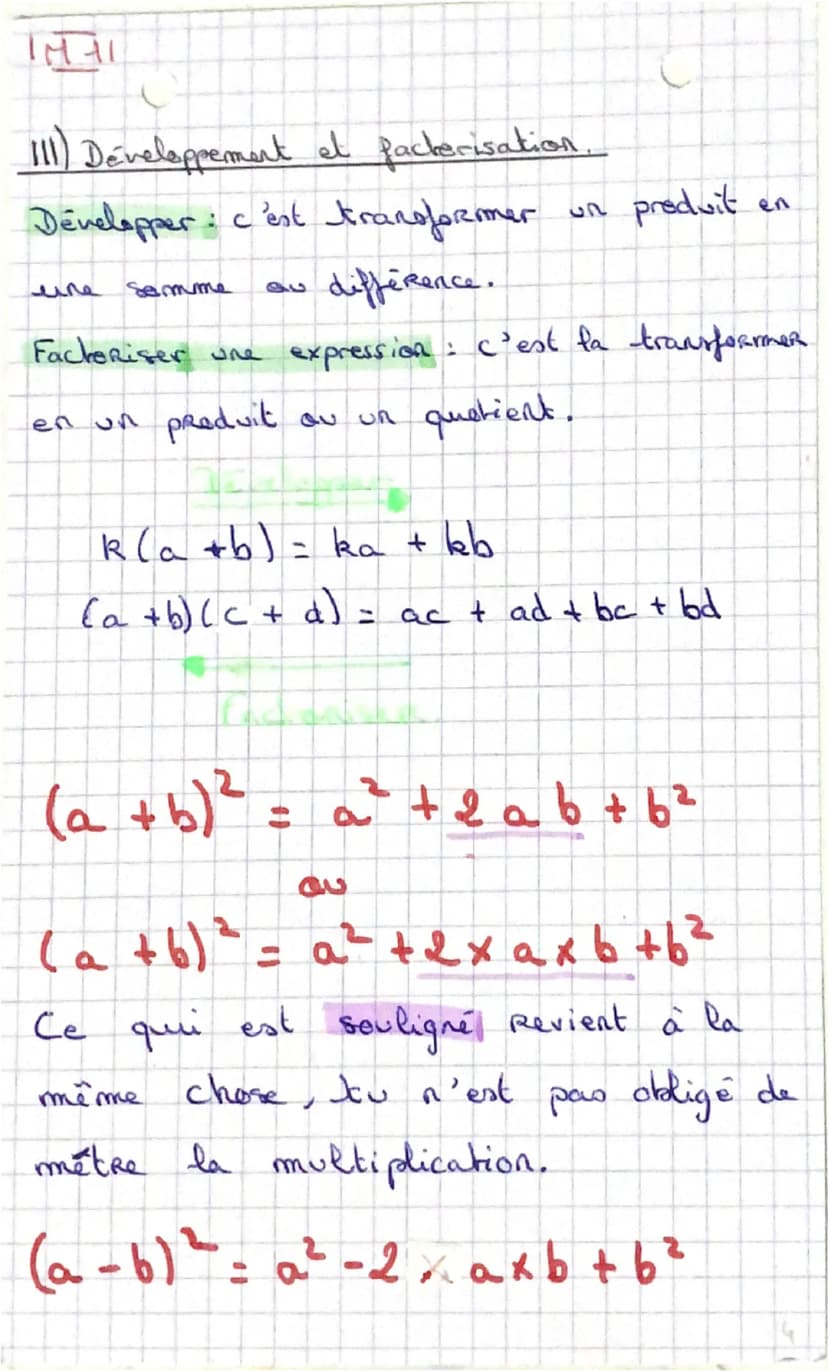 III) Développement et factorisation.
Développer : c'est transformer un produit en
une somme ou différence.
Factoriser une expression : c'est la transformer
en un produit ou un quotient.
Développer
k(a+b) = ka + kb
(a+b)(c+d) = ac + ad + bc + bd
Factoriser
(a+b)² = a² + 2ab + b²
ou
(a+b)² = a² + 2×a×b + b²
Ce qui est souligné revient à la
même chose, tu n'est pas obligé de
mêtre la multiplication.
(a-b)² = a² - 2×a×b + b²
4